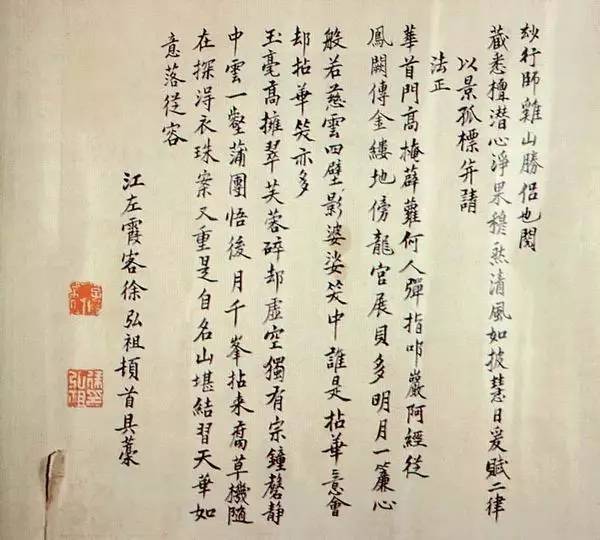 玅行師雞山勝侶也閱
藏悉檀潛心淨果穆然清風如披慧日爰賦二律
以景孤標并請
法正
華首門高掩薜蘿何人彈指叩巖阿經從
鳳闕傳金縷地傍龍宮展貝多明月一簾心
般若慈雲四壁影婆娑笑中誰是拈華意會
却拈華笑亦多
玉毫高擁翠芙蓉碎却虛空獨有宗鐘磬静
中雲一壑蒲團悟後月千峯拈来腐草機隨
在探得衣珠案又重是自名山堪結習天華如
意落從容
江左霞客徐弘祖頓首具藁